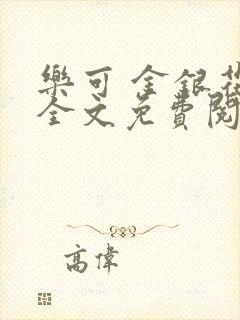 樂可 金銀花
全文免費閱
高偉